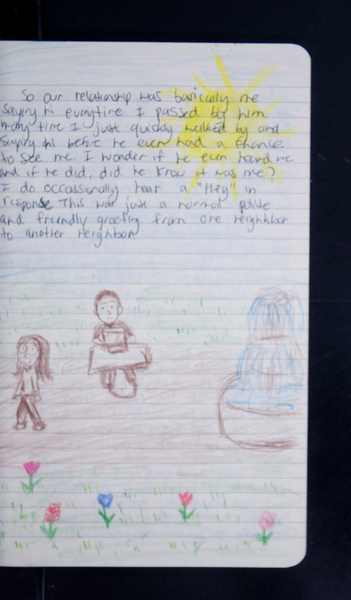 So our relationship was basically me
saying hi everytime I passed by him.
Many time I just quickly walked by and
saying hi before he even had a chance
to see me. I wonder if he even heard me
and if he did, did he know it was me?
I do occassionally hear a "Hey" in
response. This was just a normal polite
and friendly greeting from one neighbor
to another neighbor